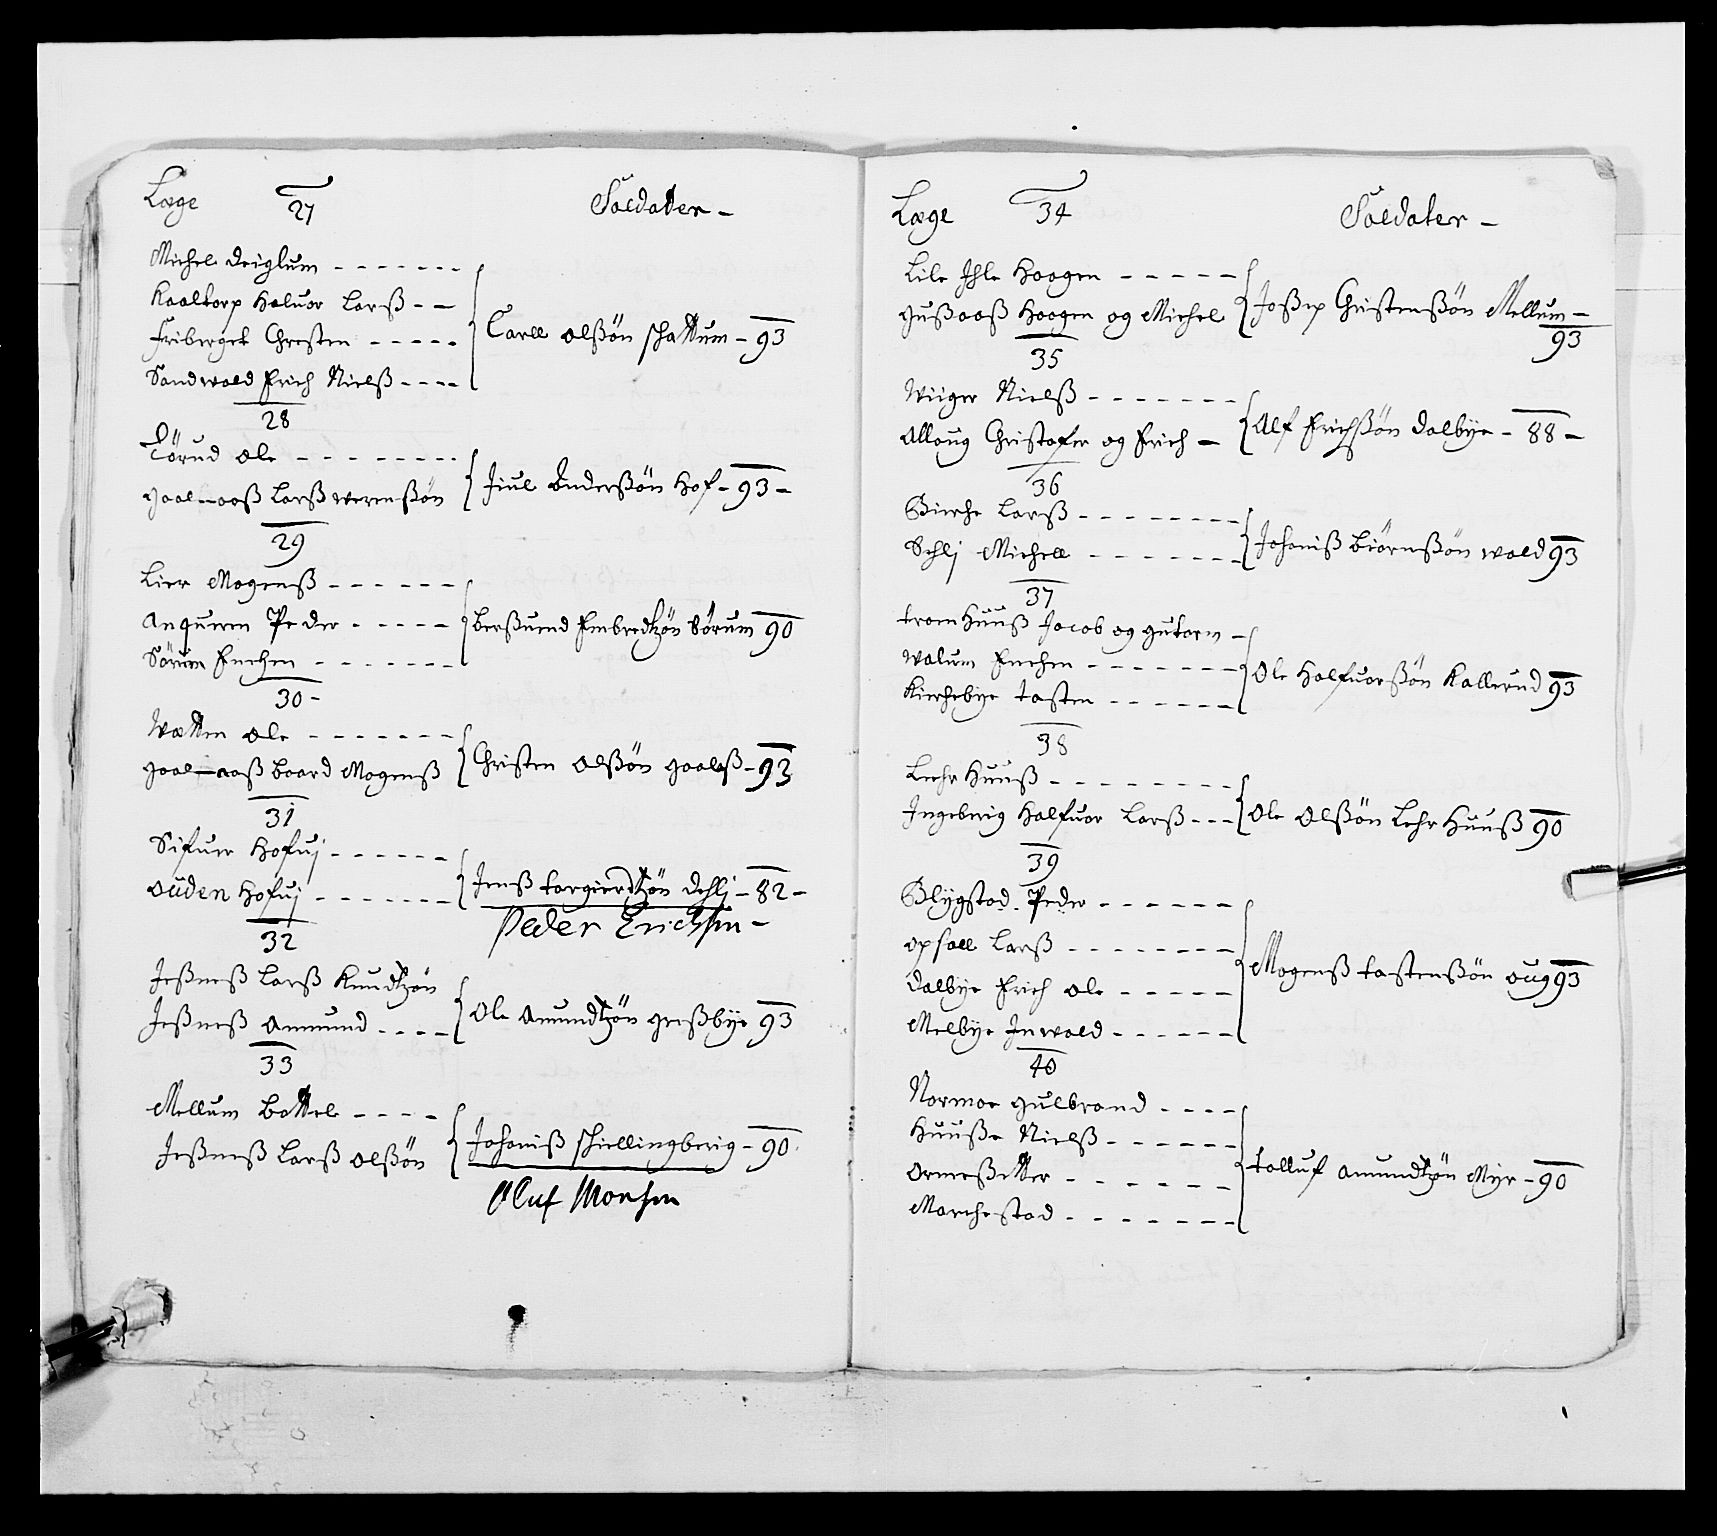 Læge 27 Soldater -
Michel Deiglum
Kaaltorp Haluor Larß
Friberget Chresten
Sandwold Erich Nielß
Carll Olßön schattum - 93
28
Törud Ole
Gaal-aaß Larß wermßön
Juul Anderßön Hof - 93 -
29
Lier Mogenß
Anquern Peder
Sörum Enchen
Berßuend Embredtzön Sörum 90
30 -
Watten Ole
Gaal-aaß Baard Mogenß
Christen Olßön Gaalaß - 93
31
Sifuer Hofuj
Ouden Hofuj
Jenß Torgierdtzön Dehlj - 82 -
Peder Erichsen -
32
Jeßneß Larß Knudtzön
Jeßneß Amund
Ole Amundtzön Greßbye 93
33
Mellum Battel
Jeßneß Larß Olßön
Johaniß schiellingberig - 90
Oluf Monsen
Læge 34 Soldater -
Lile Ihle Haagen
Gußaaß Haagen og Michel
Joßep Christenßön Mellum -
93
35
Wiiger Nielß
Alloug Christofer og Erich
Alf Erichßön Dalbye - 88 -
36
Bierche Larß
Sehlj Michell
Johaniß Biörnßön wold 93
37
Tromhuuß Jacob og Gutorm
Walum Enchen
Kierchebye Tosten
Ole Halfuorßön Kallerud 93
38
Lehr Huuß
Ingeberig Halfuor Larß
Ole Olßön Lehr Huuß 90
39
Blygstad Peder
Opsall Larß
Dalbye Erich Ole
Melbye Inwold
Mogenß Tostenßön Oug 93
40
Narmoe Gulbrand
Huuße Nielß
Ormeßetter
Marchestad
Tolluf Amundtzön Myr - 90